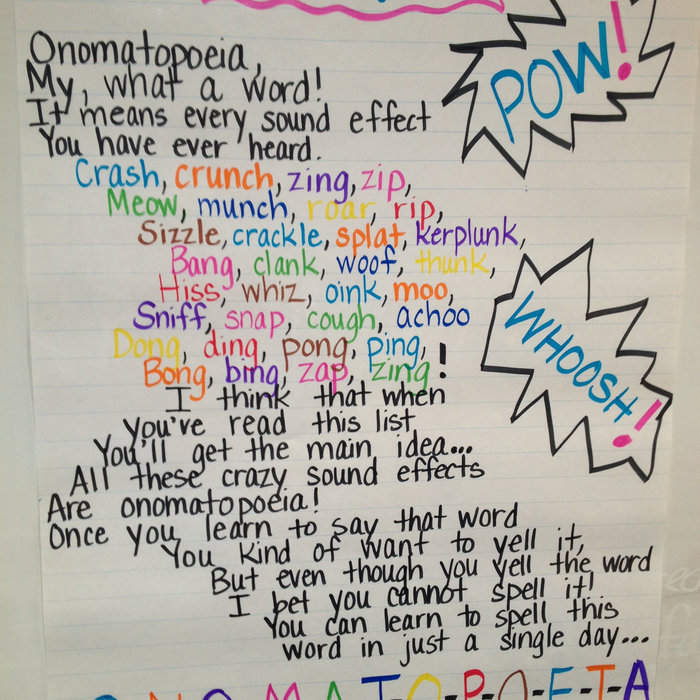 Onomatopoeia,
My, what a word!
It means every sound effect
You have ever heard.
Crash, crunch, zing, zip,
Meow, munch, roar, rip,
Sizzle, crackle, splat, kerplunk,
Bang, clank, woof, thunk,
Hiss, whiz, oink, moo,
Sniff, snap, cough, achoo
Dong, ding, pong, ping,
Bong, bing, zap, zing!
I think that when
You've read this list
You'll get the main idea...
All these crazy sound effects
Are onomatopoeia!
Once you learn to say that word
You kind of want to yell it,
But even though you yell the word
I bet you cannot spell it!
You can learn to spell this
word in just a single day...
O-N-O-M-A-T-O-P-O-E-I-A
POW!
WHOOSH!